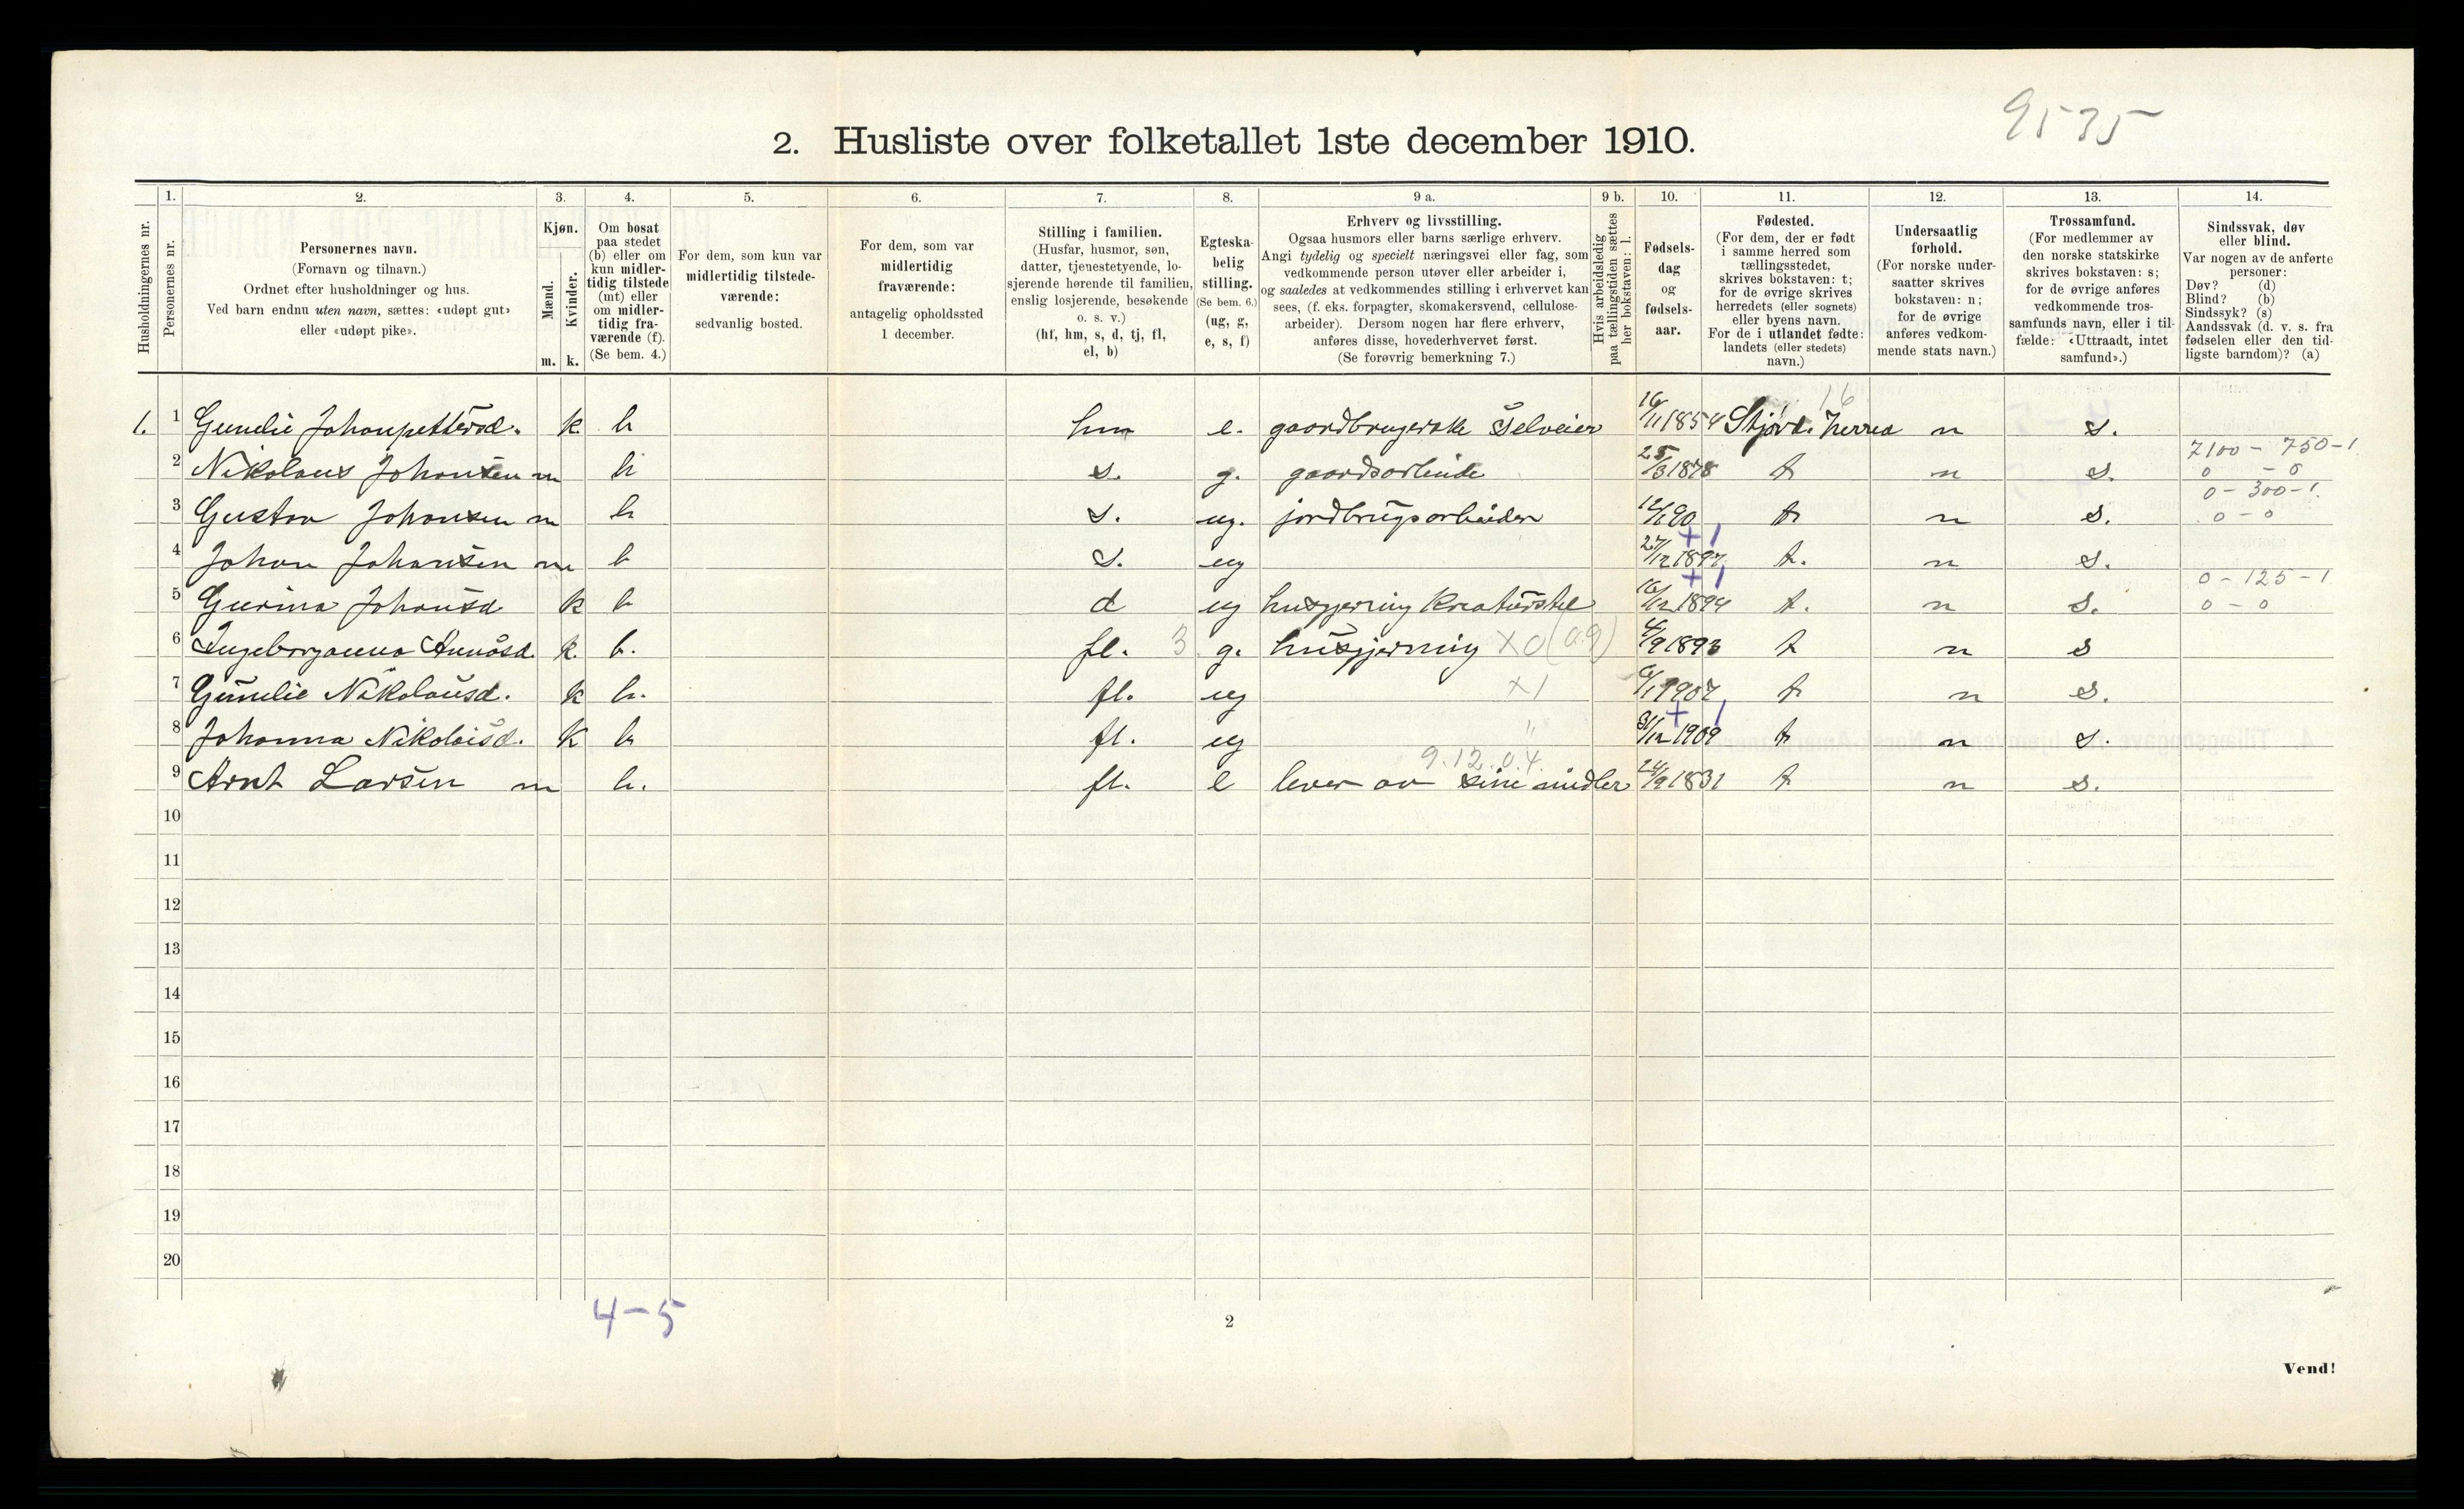 9535
2. Husliste over folketallet 1ste december 1910.
Husholdningernes nr.
1.
Personernes nr.
2.
Personernes navn.
(Fornavn og tilnavn.)
Ordnet efter husholdninger og hus.
Ved barn endnu uten navn, sættes: «udøpt gut»
eller «udøpt pike».
3.
Kjøn.
Mænd.
Kvinder.
m. k.
4.
Om bosat
paa stedet
(b) eller om
kun midler-
tidig tilstede
(mt) eller
om midler-
tidig fra-
værende (f).
(Se bem. 4.)
5.
For dem, som kun var
midlertidig tilstede-
værende:
sedvanlig bosted.
6.
For dem, som var
midlertidig
fraværende:
antagelig opholdssted
1 december.
7.
Stilling i familien.
(Husfar, husmor, søn,
datter, tjenestetyende, lo-
sjerende hørende til familien,
enslig losjerende, besøkende
o. s. v.)
(hf, hm, s, d, tj, fl,
el, b)
8.
Egteska-
belig
stilling.
(Se bem. 6.)
(ug, g,
e, s, f)
9 a.
Erhverv og livsstilling.
Ogsaa husmors eller barns særlige erhverv.
Angi tydelig og specielt næringsvei eller fag, som
vedkommende person utøver eller arbeider i,
og saaledes at vedkommendes stilling i erhvervet kan
sees, (f. eks. forpagter, skomakersvend, cellulose-
arbeider). Dersom nogen har flere erhverv,
anføres disse, hovederhvervet først.
(Se forøvrig bemerkning 7.)
9 b.
Hvis arbeidsledig
paa tællingstiden sættes
her bokstaven: l.
10.
Fødsels-
dag
og
fødsels-
aar.
11.
Fødested.
(For dem, der er født
i samme herred som
tællingsstedet,
skrives bokstaven: t;
for de øvrige skrives
herredets (eller sognets)
eller byens navn.
For de i utlandet fødte:
landets (eller stedets)
navn.)
12.
Undersaatlig
forhold.
(For norske under-
saatter skrives
bokstaven: n;
for de øvrige
anføres vedkom-
mende stats navn.)
13.
Trossamfund.
(For medlemmer av
den norske statskirke
skrives bokstaven: s;
for de øvrige anføres
vedkommende tros-
samfunds navn, eller i til-
fælde: «Uttraadt, intet
samfund».)
14.
Sindssvak, døv
eller blind.
Var nogen av de anførte
personer:
Døv? (d)
Blind? (b)
Sindssyk? (s)
Aandssvak (d. v. s. fra
fødselen eller den tid-
ligste barndom)? (a)
16
1. 1 Gunelie Johanpettersd. k b hm e. gaardbrugerske Selveier 16/11 1854 Stjørd. herred n s.
7100 - 750 - 1
2 Nikolaus Johansen m b s. g. gaardsarbeide 25/3 1878 t n s. 0 - 0
0 - 300 - 1.
3 Gustav Johansen m b s. ug. jordbrugsarbeider 12/1 90 t n s. 0 - 0
+ 1
4 Johan Johansen m b s. ug 27/12 1897 t. n s.
+ 1 0 - 125 - 1
5 Gurina Johansd k b d ug husgjerning Kreaturstel 16/12 1894 t. n s. 0 - 0
6 Ingeborganna k. b. fl. 3 g. husgjerning X0 (a.g) 4/9 1893 t n s
7 Gunelie Nikolausd. k b. fl. ug X1 6/1 1907 t n s.
+ 1
8 Johanna Nikolaisd. k b fl. ug " 31/12 1909 t n s.
9.12.04.
9 Arnt Larsen m b. fl. e lever av sine midler 24/9 1831 t n s.
10
11
12
13
14
15
16
17
18
19
20
4 - 5
2
Vend!